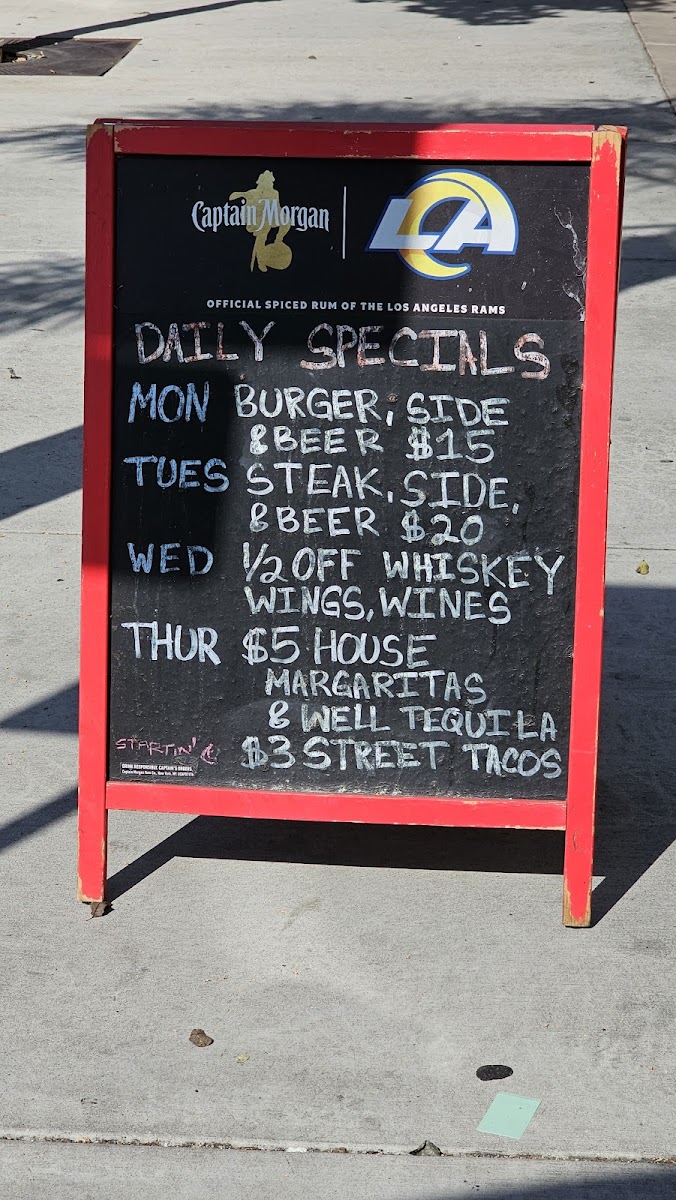 Captain Morgan
LA
OFFICIAL SPICED RUM OF THE LOS ANGELES RAMS
DAILY SPECIALS
MON BURGER, SIDE
& BEER $15
TUES STEAK, SIDE,
& BEER $20
WED 1/2 OFF WHISKEY
WINGS, WINES
THUR $5 HOUSE
MARGARITAS
& WELL TEQUILA
STARTIN' @ $3 STREET TACOS
DRINK RESPONSIBLY. CAPTAIN'S ORDERS.